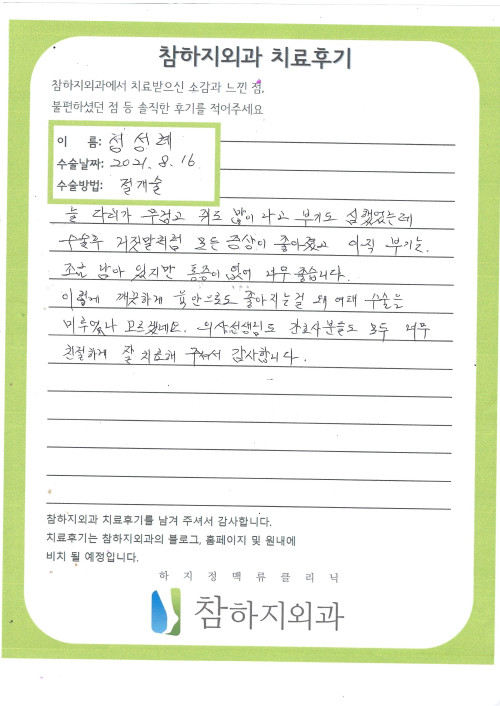 참하지외과 치료후기
참하지외과에서 치료받으신 소감과 느낀 점,
불편하셨던 점 등 솔직한 후기를 적어주세요
이 름: 정성례
수술날짜: 2021. 8. 16
수술방법: 절개술
늘 다리가 무겁고 쥐도 많이 나고 부기도 심했었는데
수술후 거짓말처럼 모든 증상이 좋아졌고 아직 부기는
조금 남아 있지만 통증이 없어 너무 좋습니다.
이렇게 깨끗하게 육안으로도 좋아지는걸 왜 여태 수술을
미루었나 모르겠네요. 의사선생님도 간호사분들도 모두 너무
친절하게 잘 치료해 주셔서 감사합니다.
참하지외과 치료후기를 남겨 주셔서 감사합니다.
치료후기는 참하지외과의 블로그, 홈페이지 및 원내에
비치 될 예정입니다.
하지정맥류클리닉
참하지외과